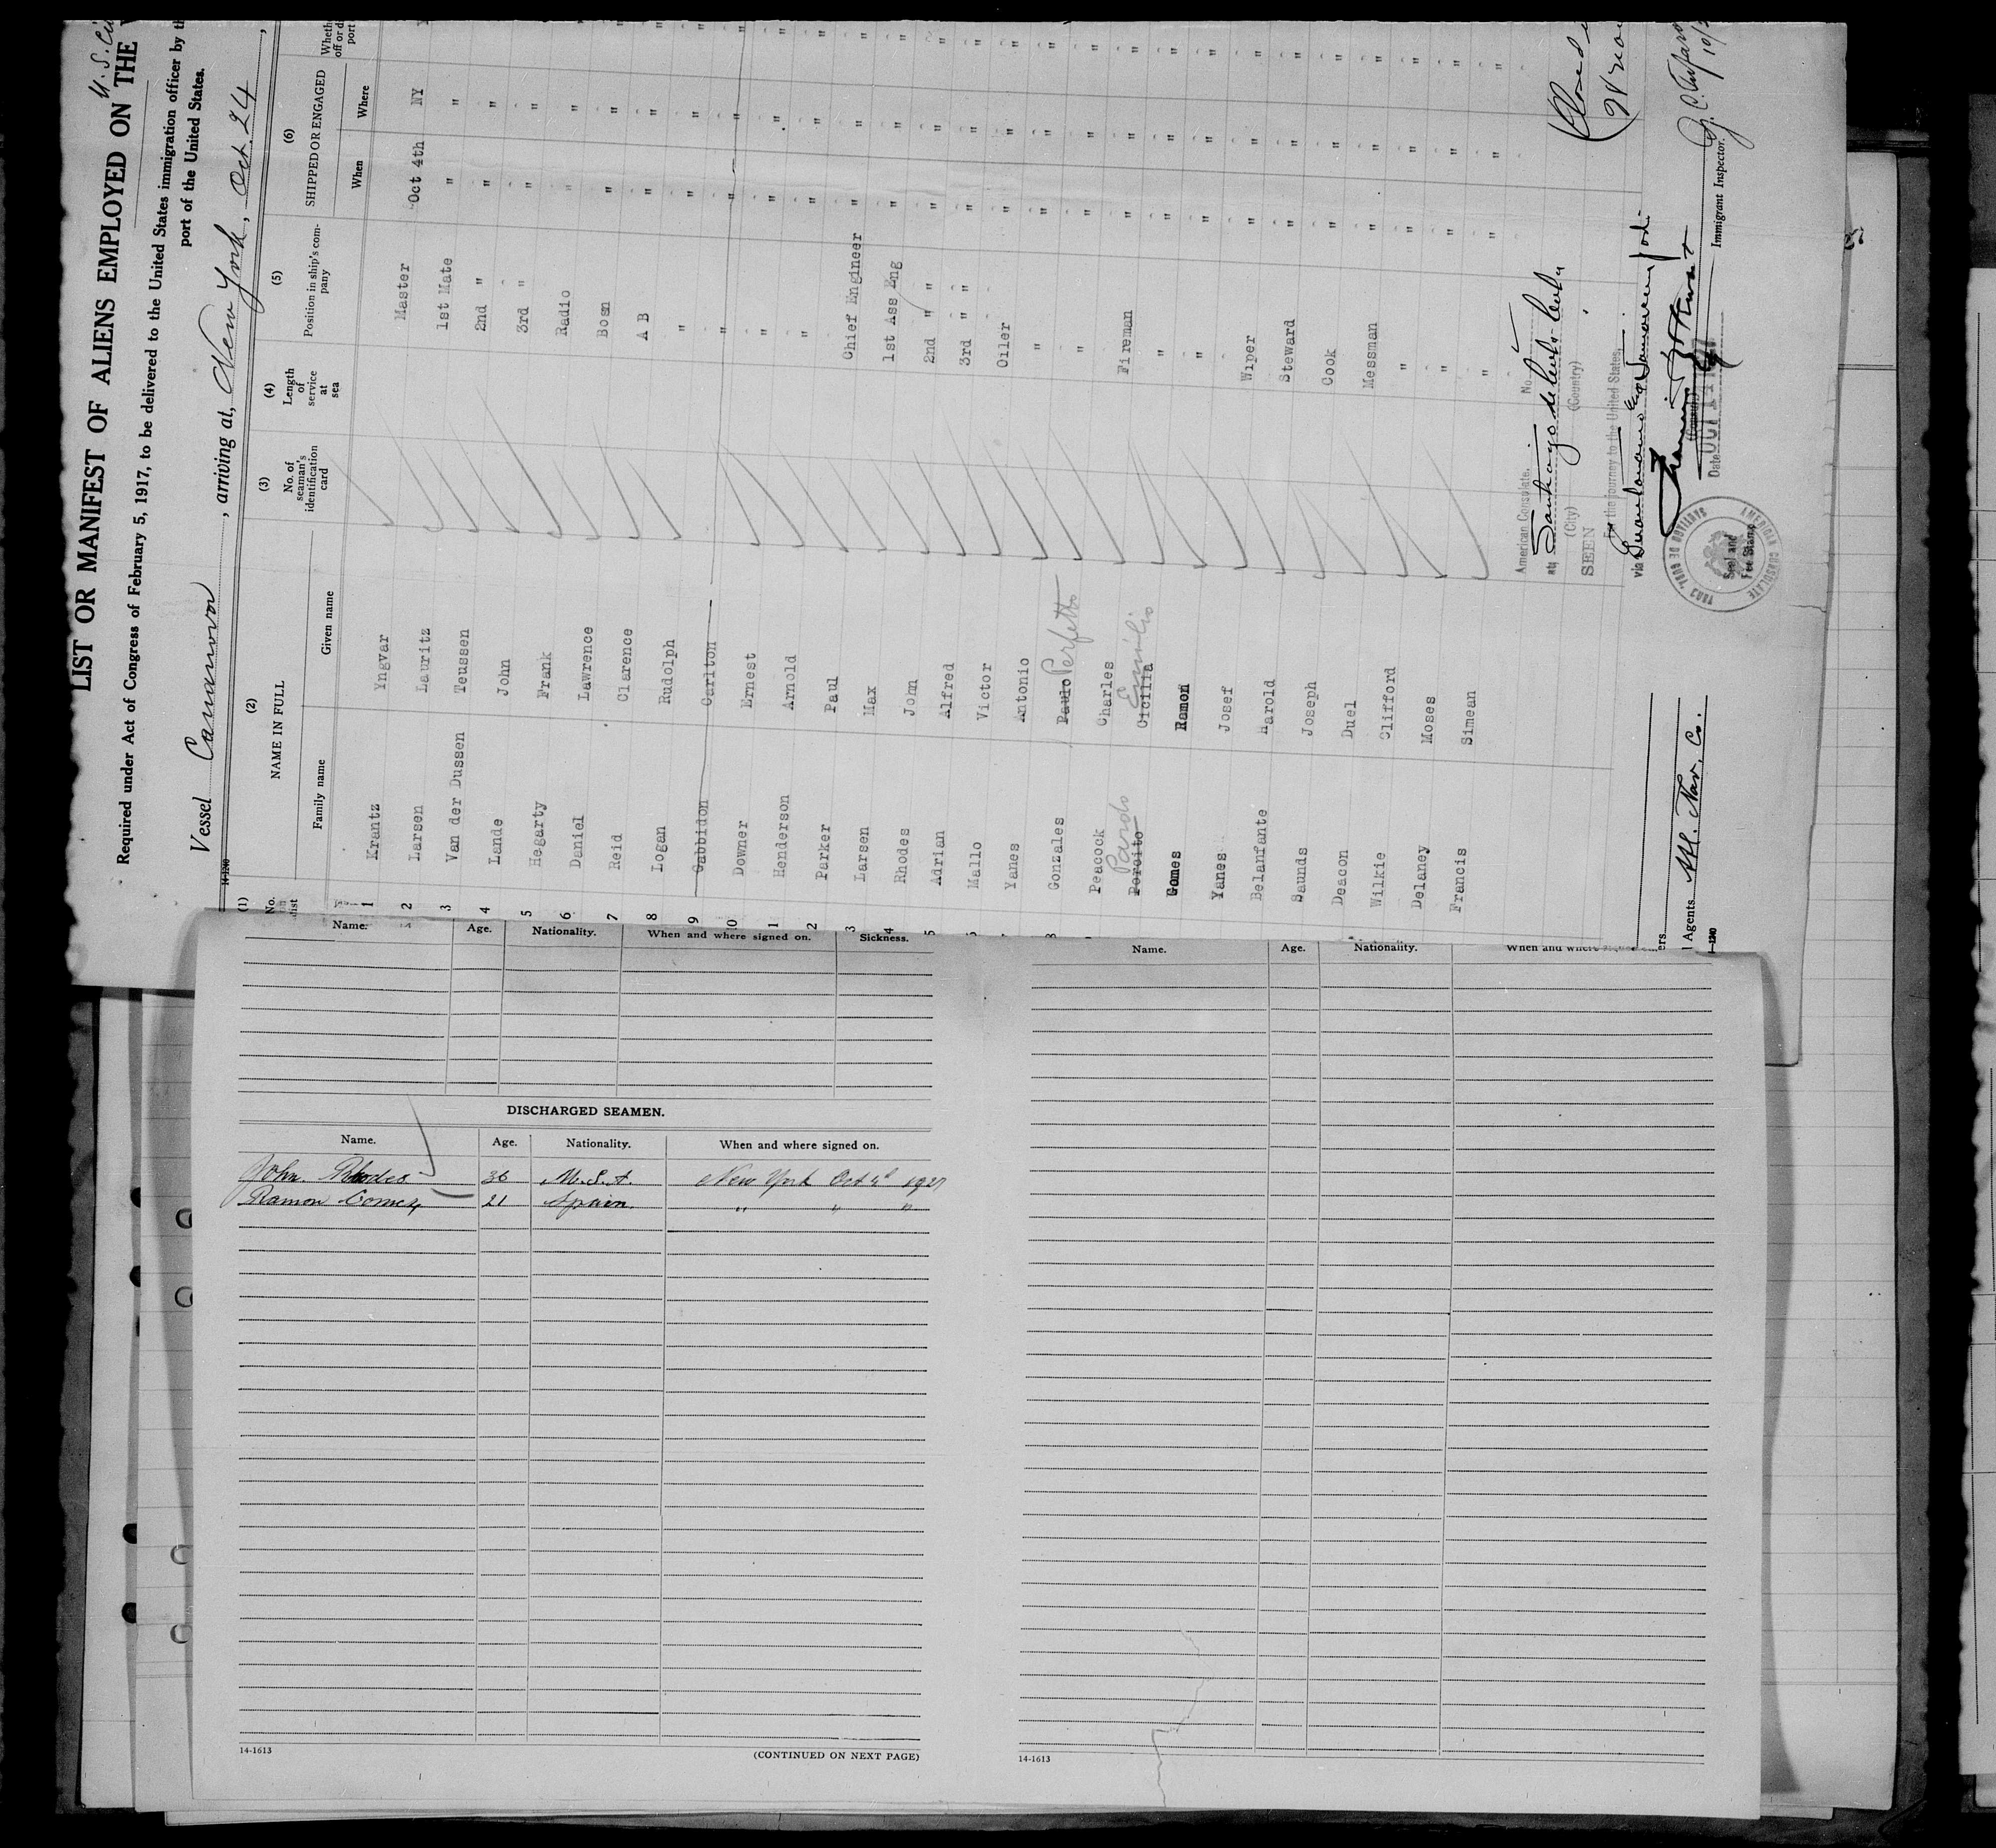 U.S. Ci
LIST OR MANIFEST OF ALIENS EMPLOYED ON THE
Required under Act of Congress of February 5, 1917, to be delivered to the United States immigration officer by th
port of the United States.
Vessel , arriving at, New York, Oct. 24,
14-1240
(1) (2) (3) (4) (5) (6)
No. list NAME IN FULL No. of seaman's identification card Length of service at sea Position in ship's company SHIPPED OR ENGAGED
Family name Given name When Where
1 Krantz Yngvar Master Oct 4th NY
2 Larsen Lauritz 1st Mate " "
3 Van der Dussen Teussen 2nd " " "
4 Lande John 3rd " " "
5 Hegarty Frank Radio " "
6 Daniel Lawrence Bosn " "
7 Reid Clarence A B " "
8 Logan Rudolph " " "
9 Gabbidon Carlton " " "
10 Downer Ernest " " "
1 Henderson Arnold " " "
2 Parker Paul Chief Engineer " "
3 Larsen Max 1st Ass Eng " "
4 Rhodes John 2nd " " " "
5 Adrian Alfred 3rd " " " "
6 Mallo Victor Oiler " "
Yanes Antonio " " "
8 Gonzales Paulo Perfetto " " "
Peacock Charles Fireman " "
Porcito Pardo Cicilia Emilio " " "
Gomes Ramon " " "
Yanes Josef Wiper " "
Belanfante Harold Steward " "
Saunds Joseph Cook " "
Deacon Duel Messman " "
Wilkie Clifford " " "
Delaney Moses " " "
Francis Simean " " "
American Consulate, No.
at, Santiago de Cuba, Cuba
(City) (Country)
SEEN
For the journey to the United States,
via Guantanamo
(Consul)
Date OCT
AMERICAN CONSULATE
SANTIAGO DE CUBA, CUBA
Seal and
Fee Stamp
Immigrant Inspector.
ers
l Agents Nav. Co.
Name. Age. Nationality. When and where signed on. Sickness.
DISCHARGED SEAMEN.
Name. Age. Nationality. When and where signed on.
John Rhodes 36 U.S.A. New York Oct 4th 1927
Ramon Gomez 21 Spain " " "
14-1613 (CONTINUED ON NEXT PAGE)
Name. Age. Nationality. When and where signed
14-1613